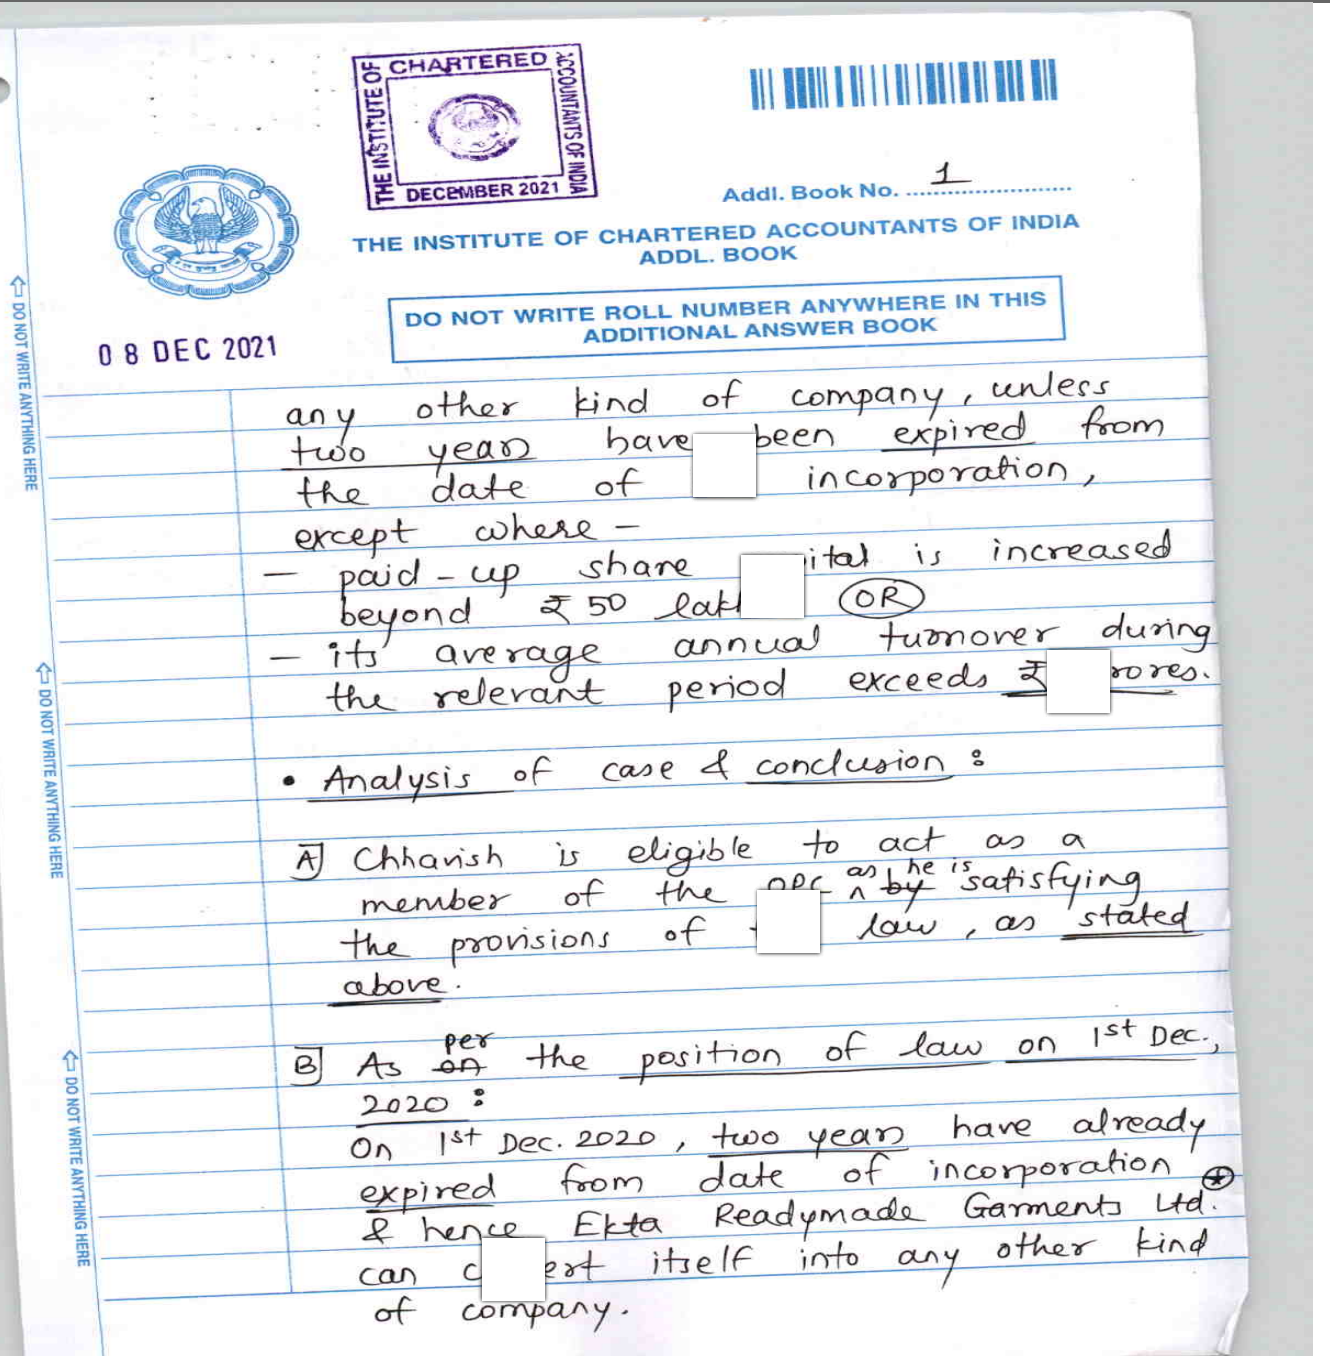 THE INSTITUTE OF CHARTERED ACCOUNTANTS OF INDIA
DECEMBER 2021
Addl. Book No. 1
THE INSTITUTE OF CHARTERED ACCOUNTANTS OF INDIA
ADDL. BOOK
DO NOT WRITE ROLL NUMBER ANYWHERE IN THIS
ADDITIONAL ANSWER BOOK
08 DEC 2021
DO NOT WRITE ANYTHING HERE
DO NOT WRITE ANYTHING HERE
DO NOT WRITE ANYTHING HERE
any other kind of company, unless
two years have been expired from
the date of incorporation,
except where –
– paid-up share is increased
beyond ₹ 50 OR
– its average annual turnover during
the relevant period exceeds ₹
• Analysis of case & conclusion :
A] Chharish is eligible to act as a
as he is
member of the by satisfying
the provisions of law, as stated
above.
per
B] As on the position of law on 1st Dec.,
2020 :
On 1st Dec. 2020, two years have already
expired from date of incorporation
& hence Ekta Readymade Garments Ltd.
can itself into any other kind
of company.